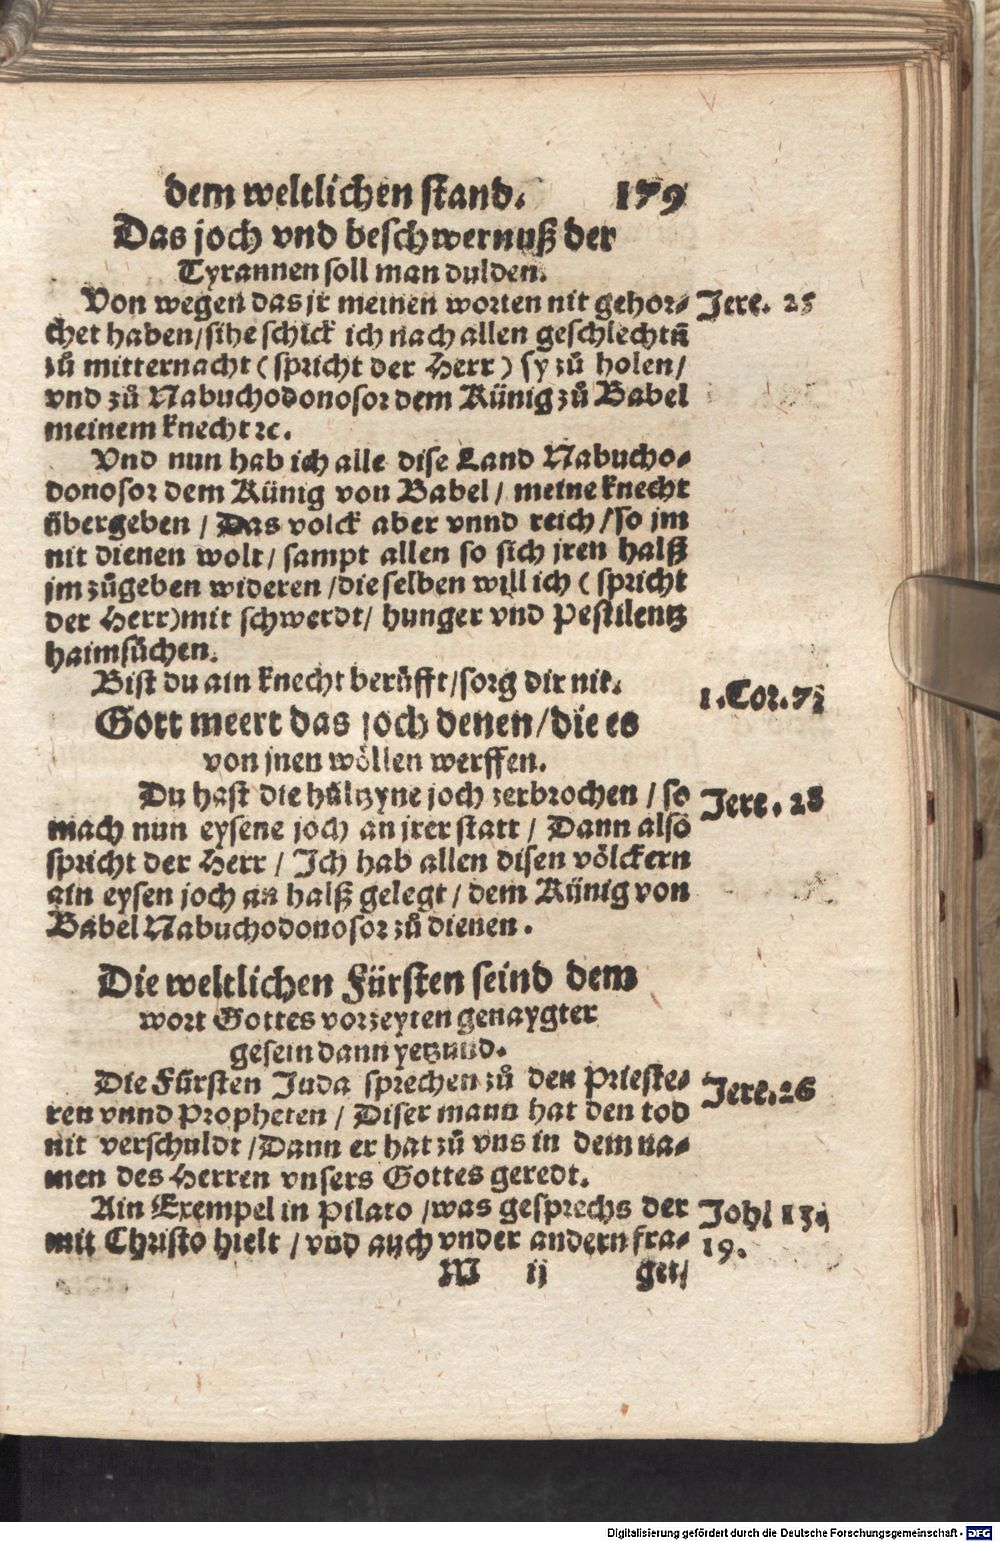 dem weltlichen stand. 179
Das joch vnd beschwernuß der
Tyrannen soll man dulden.
Von wegen das jr meinen worten nit gehor- Jere. 25
chet haben/ sihe schick ich nach allen geschlechtñ
zů mitternacht ( spricht der Herr ) sy zů holen/
vnd zů Nabuchodonosor dem Künig zů Babel
meinem knecht ꝛc.
Vnd nun hab ich alle dise Land Nabucho-
donosor dem Künig von Babel / meine knecht
übergeben / Das volck aber vnnd reich / so jm
nit dienen wolt / sampt allen so sich jren halß
jm zůgeben wideren / dieselben will ich ( spricht
der Herr) mit schwerdt/ hunger vnd Pestilentz
haimsůchen.
Bist du ain knecht berůfft/ sorg dir nit. 1. Cor. 7
Gott meert das joch denen/ die es
von jnen wöllen werffen.
Du hast die hültzyne joch zerbrochen / so Jere. 28
mach nun eysene joch an jrer statt / Dann also
spricht der Herr / Ich hab allen disen völckern
ain eysen joch an halß gelegt / dem Künig von
Babel Nabuchodonosor zů dienen .
Die weltlichen Fürsten seind dem
wort Gottes vorzeyten genaygter
gesein dann yetzund.
Die Fürsten Juda sprechen zů den Prieste- Jere. 26
ren vnnd Propheten / Diser mann hat den tod
nit verschuldt / Dann er hat zů vns in dem na-
men des Herren vnsers Gottes geredt.
Ain Exempel in Pilato / was gesprechs der Joh
mit Christo hielt / vnd auch vnder andern fra- 19.
M ij get/
Digitalisierung gefördert durch die Deutsche Forschungsgemeinschaft - DFG